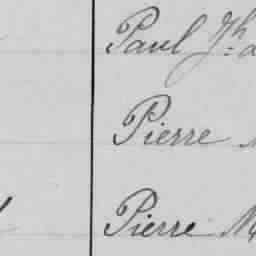 Paul Jh
Pierre
Pierre M